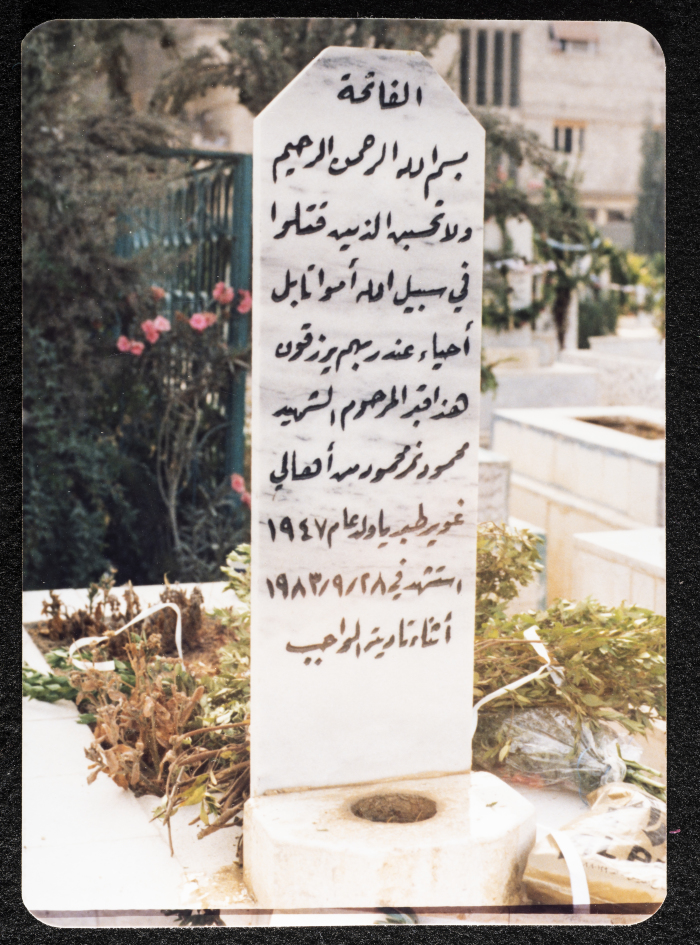 الفاتحة
بسم الله الرحمن الرحيم
ولا تحسبن الذين قتلوا
في سبيل الله أمواتا بل
أحياء عند ربهم يرزقون
هذا قبر المرحوم الشهيد
محمود نمر محمود من أهالي
غوير طبريا ولد عام ١٩٤٧
استشهد في ٢٨/٩/١٩٨٣
أثناء تأدية الواجب